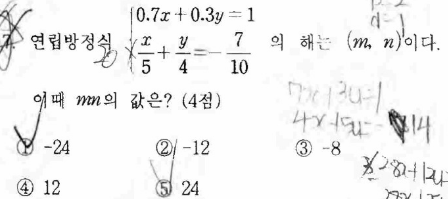 0.7x+0.3y=1
7. 연립방정식 x/5+y/4=-7/10 의 해는 (m, n)이다.
20
이때 mn의 값은? (4점)
① -24 ② -12 ③ -8
④ 12 ⑤ 24